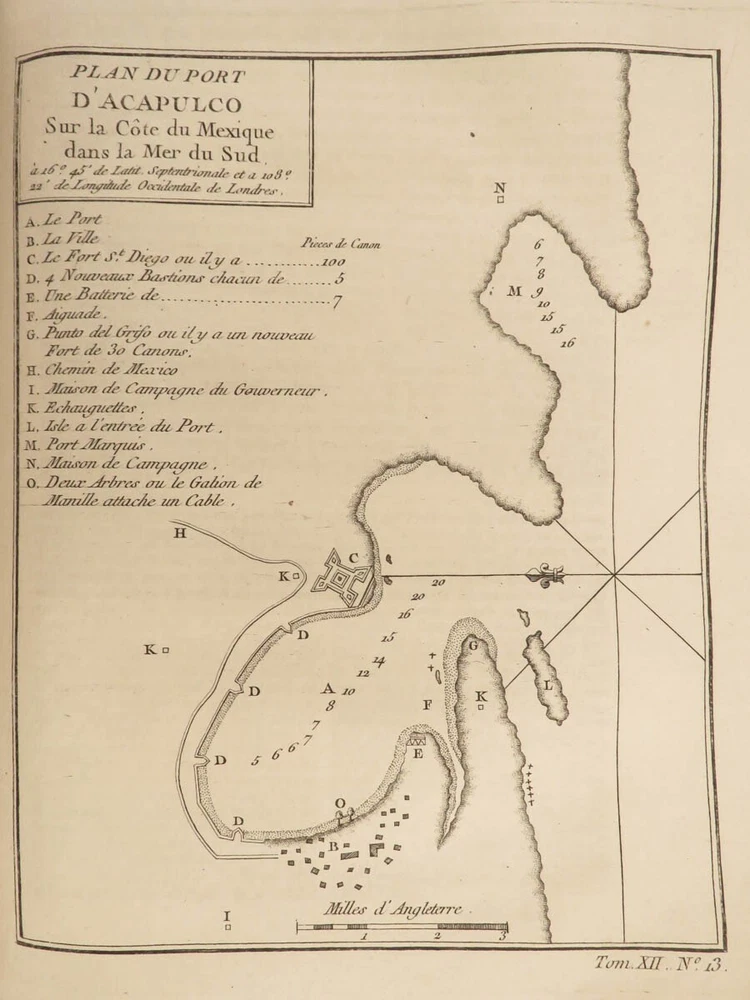 PLAN DU PORT
D'ACAPULCO
Sur la Côte du Mexique
dans la Mer du Sud.
à 16° 45' de Latit. Septentrionale et a 108°
22' de Longitude Occidentale de Londres.
A. Le Port
B. La Ville
Pieces de Canon
C. Le Fort St. Diego ou il y a ............100
D. 4 Nouveaux Bastions chacun de.......5
E. Une Batterie de.........................7
F. Aiguade.
G. Punto del Grifo ou il y a un nouveau
Fort de 30 Canons.
H. Chemin de Mexico
I. Maison de Campagne du Gouverneur.
K. Echauguettes.
L. Isle a l'entrée du Port.
M. Port Marquis.
N. Maison de Campagne.
O. Deux Arbres ou le Galion de
Manille attache un Cable.
N
6
7
8
M 9
10
15
15
16
H
C
K
20
20
16
K
D
15
G
14
12
L
D
A 10
K
8
F
7
7
D
5 6 6
E
O
D
B
I
Milles d'Angleterre.
1 2 3
Tom. XII. N° 13.